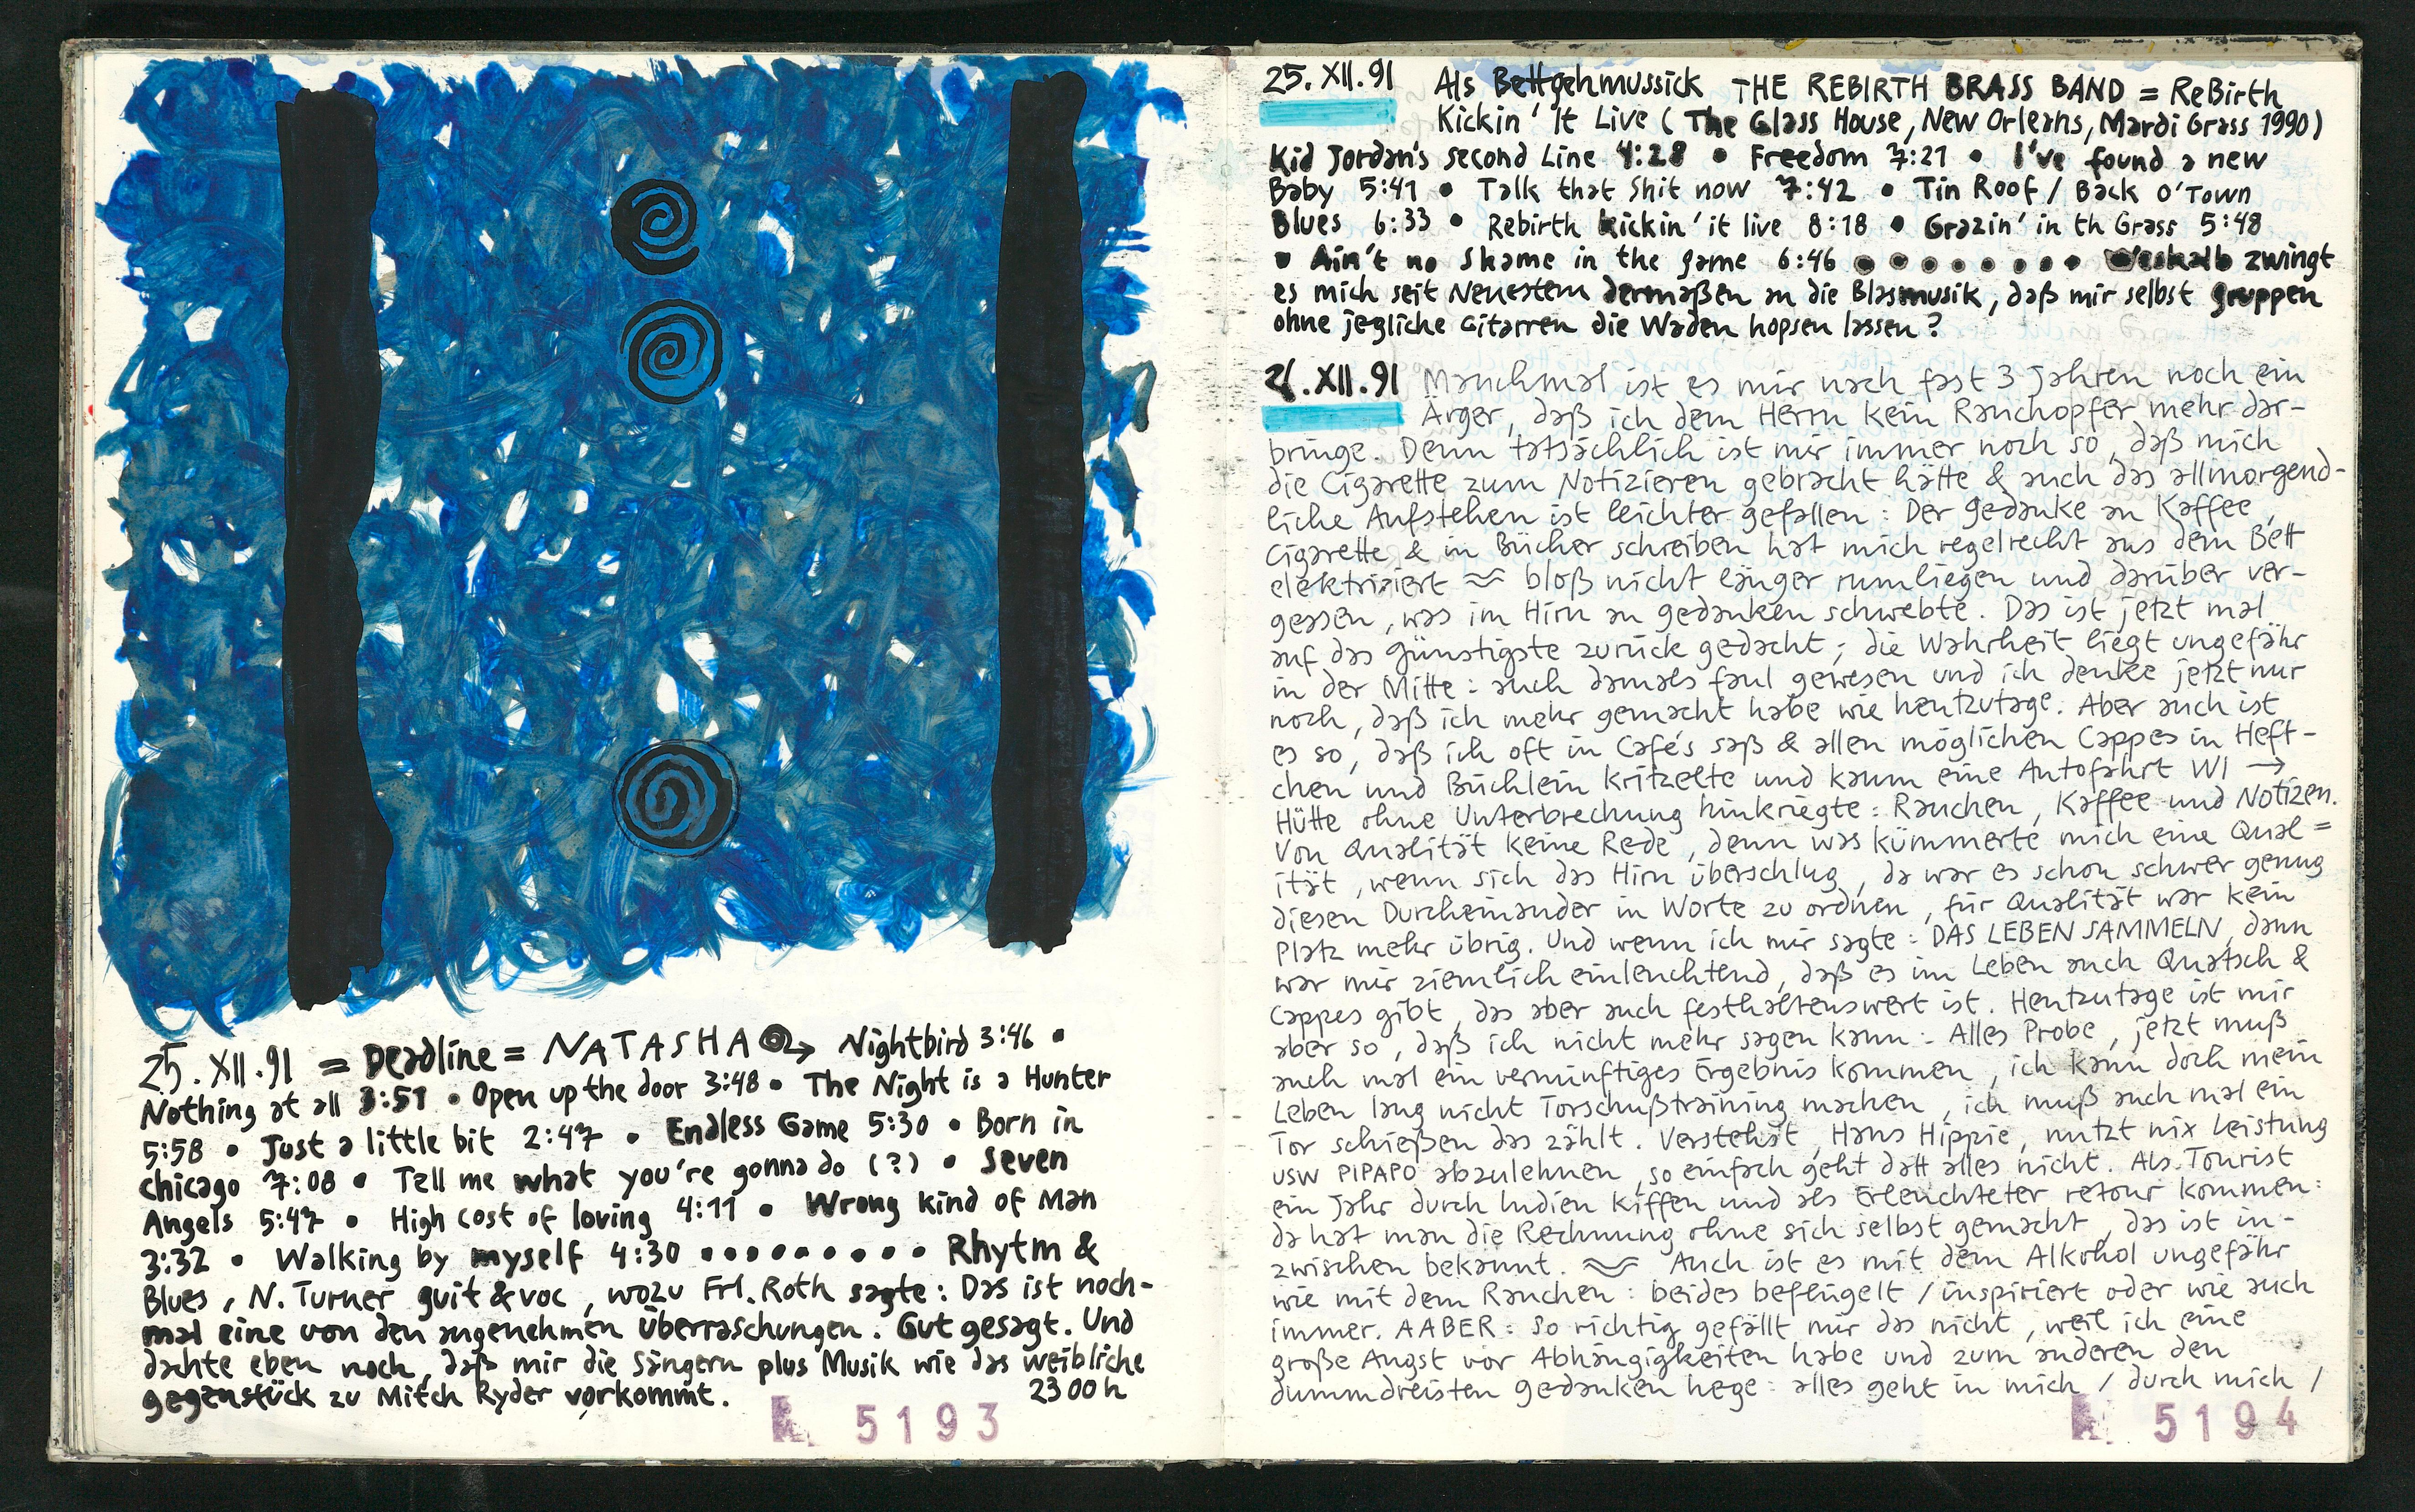 25.XII.91 = Deadline = NATASHA → Nightbird 3:46 •
Nothing at all 3:51 • Open up the door 3:48 • The Night is a Hunter
5:58 • Just a little bit 2:47 • Endless Game 5:30 • Born in
chicago 7:08 • Tell me what you're gonna do (?) • Seven
Angels 5:47 • High cost of loving 4:11 • Wrong kind of Man
3:32 • Walking by myself 4:30 • • • • • • • • • Rhytm &
Blues, N. Turner guit & voc, wozu Frl. Roth sagte: Das ist noch-
mal eine von den angenehmen Überraschungen. Gut gesagt. Und
dachte eben noch, daß mir die Sängern plus Musik wie das weibliche
gegenstück zu Mitch Ryder vorkommt. 2300h
5193
25.XII.91 Als Bettgehmussick THE REBIRTH BRASS BAND = ReBirth
Kickin' It Live (The Glass House, New Orleans, Mardi Grass 1990)
Kid Jordan's second Line 4:28 • Freedom 7:21 • I've found a new
Baby 5:41 • Talk that Shit now 7:42 • Tin Roof / Back O'Town
Blues 6:33 • Rebirth kickin' it live 8:18 • Grazin' in th Grass 5:48
• Ain't no Shame in the game 6:46 • • • • • • • • Weshalb zwingt
es mich seit Neuestem dermaßen an die Blasmusik, daß mir selbst gruppen
ohne jegliche Gitarren die Waden hopsen lassen?
.XII.91 Manchmal ist es mir nach fast 3 Jahren noch ein
Ärger, daß ich dem Herrn kein Rauchopfer mehr dar-
bringe. Denn tatsächlich ist mir immer noch so, daß mich
die Cigarette zum Notizieren gebracht hätte & auch das allmorgend-
liche Aufstehen ist leichter gefallen: Der Gedanke an Kaffee,
Cigarette & in Bücher schreiben hat mich regelrecht aus dem Bett
elektrisiert ≈ bloß nicht länger rumliegen und darüber ver-
gessen, was im Hirn an gedanken schwebte. Das ist jetzt mal
auf das günstigste zurück gedacht; die Wahrheit liegt ungefähr
in der Mitte: auch damals faul gewesen und ich denke jetzt nur
noch, daß ich mehr gemacht habe wie heutzutage. Aber auch ist
es so, daß ich oft in Cafés saß & allen möglichen Cappes in Heft-
chen und Büchlein kritzelte und kaum eine Autofahrt WI →
Hütte ohne Unterbrechung hinkriegte: Rauchen, Kaffee und Notizen.
Von Qualität keine Rede, denn was kümmerte mich eine Qual=
ität, wenn sich das Hirn überschlug, da war es schon schwer genug
diesen Durcheinander in Worte zu ordnen, für Qualität war kein
Platz mehr übrig. Und wenn ich mir sagte: DAS LEBEN SAMMELN, dann
war mir ziemlich einleuchtend, daß es im Leben auch Quatsch &
Cappes gibt, das aber auch festhaltenswert ist. Heutzutage ist mir
aber so, daß ich nicht mehr sagen kann: Alles Probe, jetzt muß
auch mal ein vernünftiges Ergebnis kommen, ich kann doch mein
Leben lang nicht Torschußtraining machen, ich muß auch mal ein
Tor schießen das zählt. Verstehst, Hans Hippie, nutzt nix Leistung
usw PIPAPO abzulehnen, so einfach geht datt alles nicht. Als Tourist
ein Jahr durch Indien kiffen und als Erleuchteter retour kommen:
da hat man die Rechnung ohne sich selbst gemacht, das ist in-
zwischen bekannt. ≈ Auch ist es mit dem Alkohol ungefähr
wie mit dem Rauchen: beides beflügelt / inspiriert oder wie auch
immer. AABER: so richtig gefällt mir das nicht, weil ich eine
große Angst vor Abhängigkeiten habe und zum anderen den
dummdreisten gedanken hege: alles geht in mich / durch mich /
5194